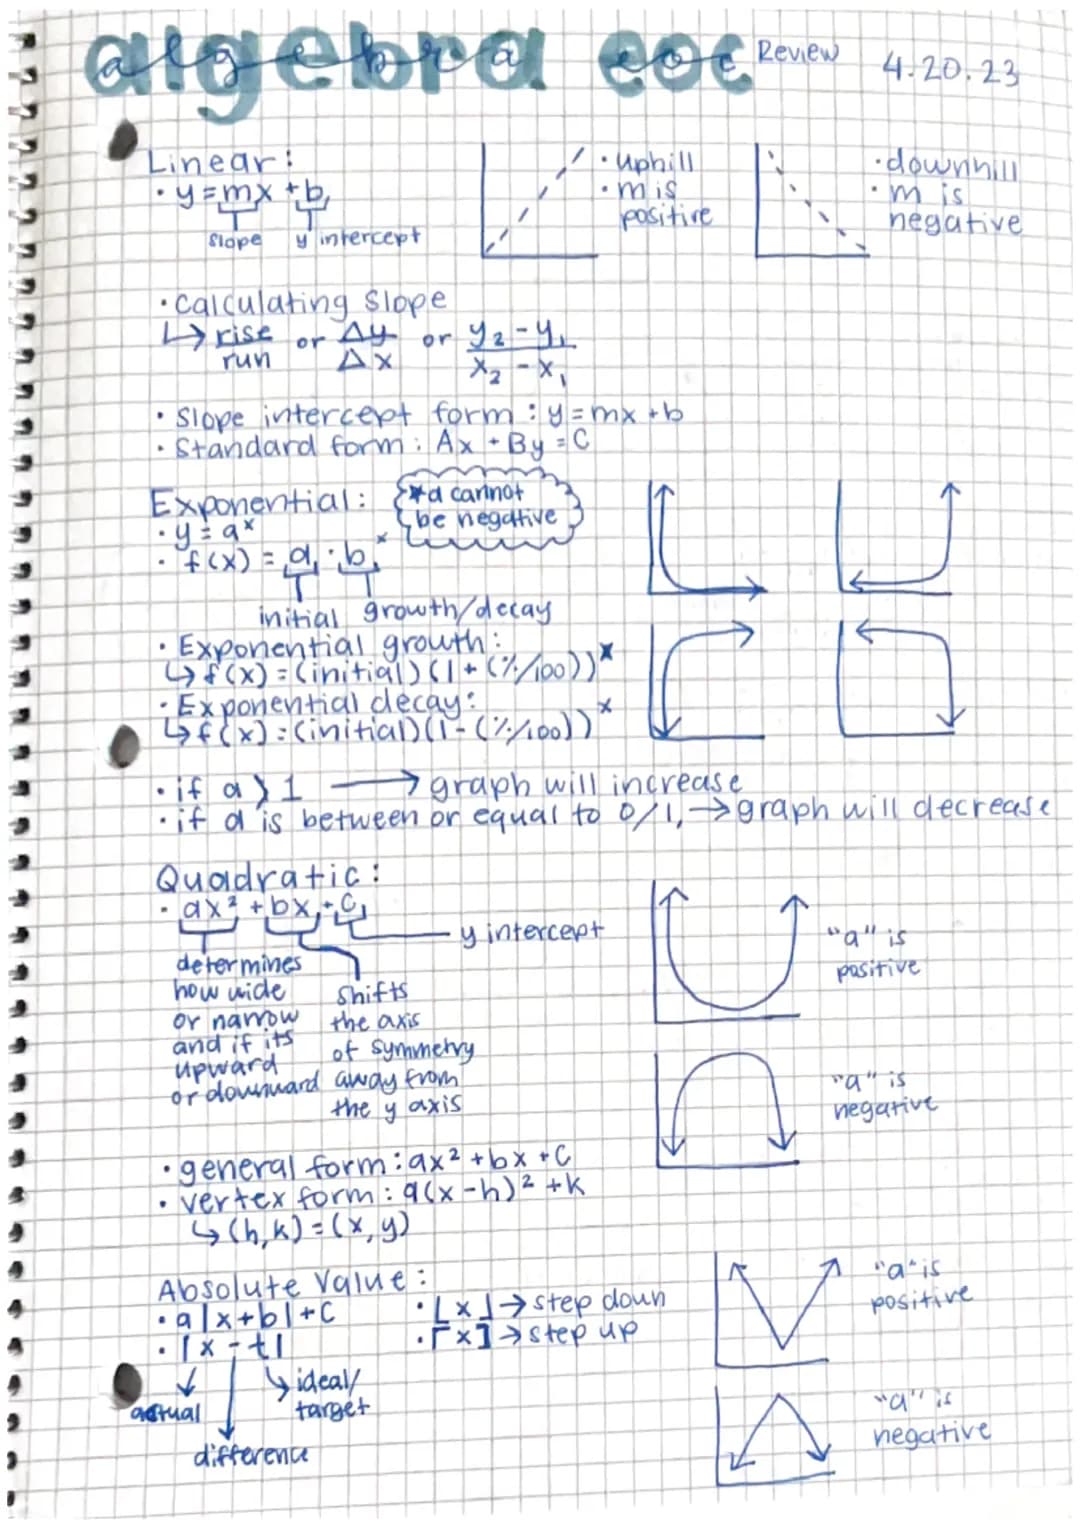 algebra eoc Review 4.20.23
Linear:
• y = mx + b
slope y intercept
• uphill
• m is
positive
• downhill
• m is
negative
• Calculating Slope
↳ rise/run or Δy/Δx or y₂ - y₁/x₂ - x₁
• Slope intercept form : y = mx + b
• Standard form : Ax + By = C
Exponential:
*a cannot
be negative
• y = aˣ
• f(x) = a · bˣ
initial growth/decay
• Exponential growth:
↳ f(x) = (initial)(1 + (%/100))ˣ
• Exponential decay:
↳ f(x) = (initial)(1 - (%/100))ˣ
• if a > 1 → graph will increase
• if a is between or equal to 0/1, → graph will decrease
Quadratic:
• ax² + bx + C
y intercept
determines
how wide
or narrow
and if its
upward
or downward
Shifts
the axis
of symmetry
away from
the y axis
"a" is
positive
"a" is
negative
• general form : ax² + bx + C
• vertex form : a(x-h)² + k
↳ (h,k) = (x,y)
Absolute Value:
• a|x+b|+C
• |x - t|
actual
difference
ideal/
target
• ⌊x⌋ → step down
• ⌈x] → step up
"a" is
positive
"a" is
negative